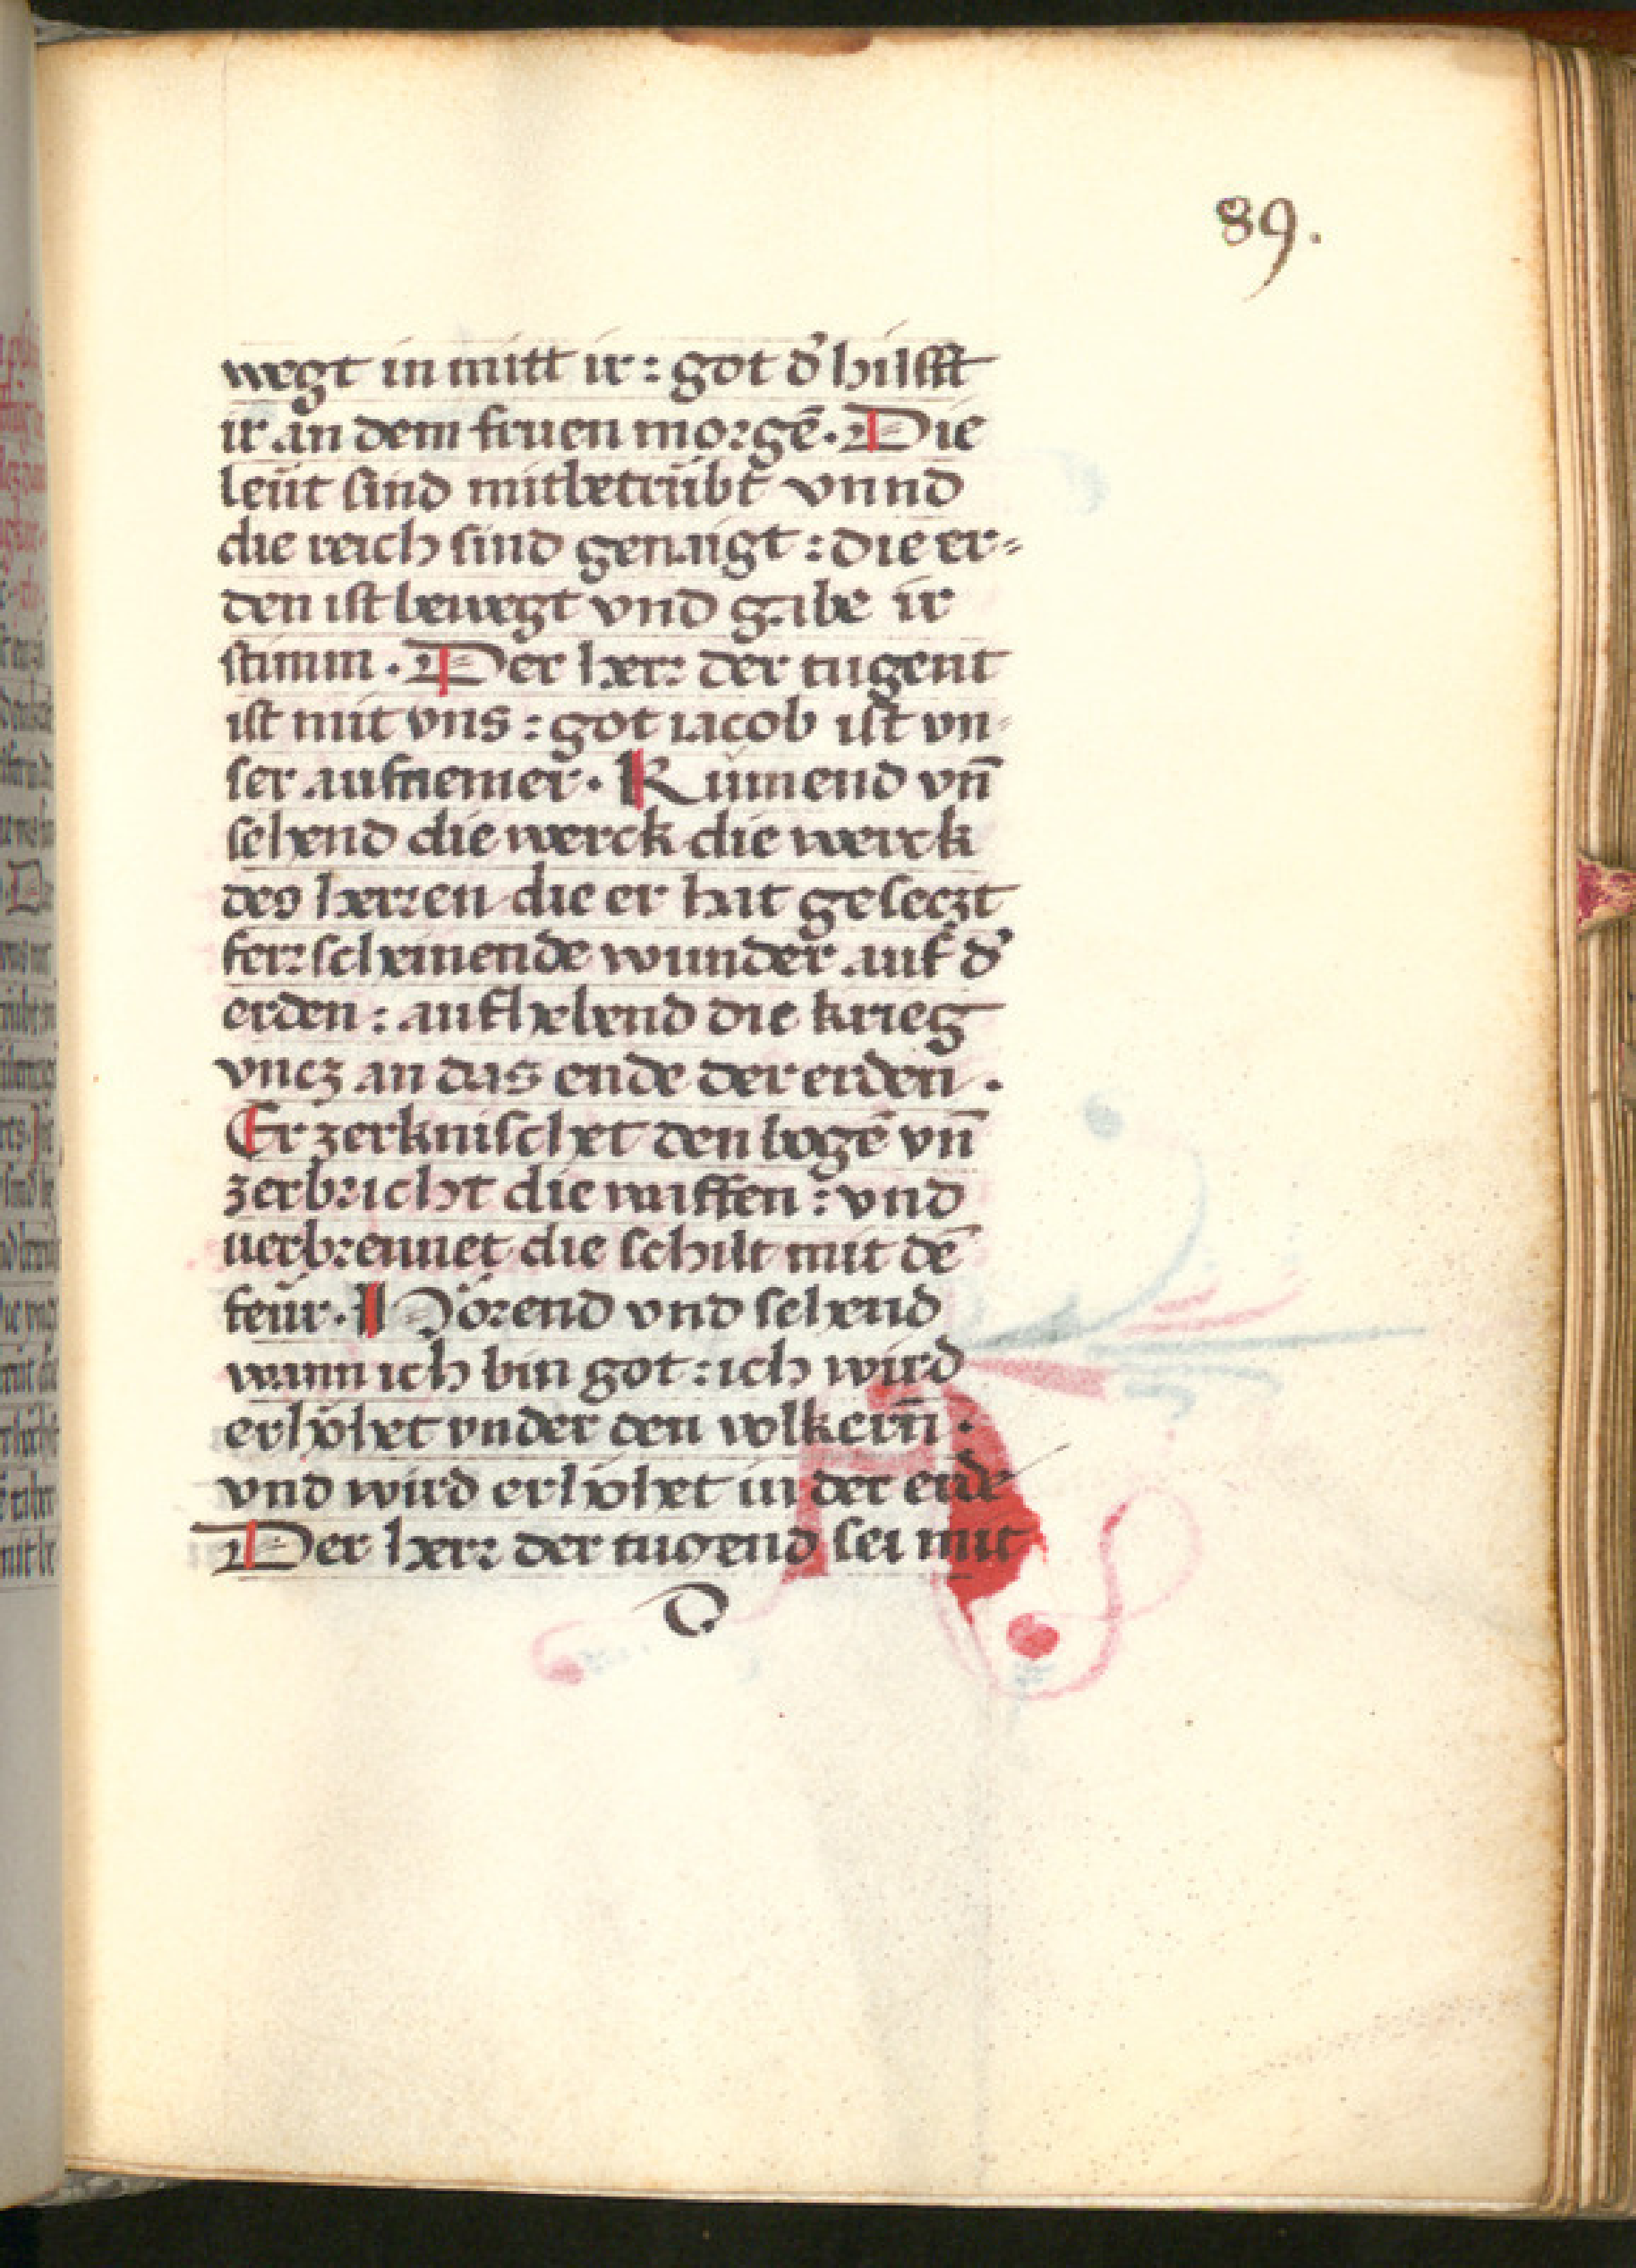 89.
wegt in mitt ir : got d̕ hilfft
ir an dem fruen morgē. Die
leüt sind mitbetrübt vnnd
die reich sind genaigt : die er⸗
den ist bewegt vnd gabe ir
stimm. Der herr der tugent
ist mit vns : got iacob ist vn⸗
ser aufnemer. Kumend vn̄
sehend die werck die werck
des herren die er hat geseczt
ferr scheinende wunder auf d̕
erden : aufhebend die krieg
vncz an das ende der erden.
Er zerknischet den bogē vn̄
zerbricht die waffen : vnd
uerbrennet die schilt mit dē
feür. Hörend vnd sehend
wann ich bin got : ich wird
erhöhet vnder den volkern̄.
vnd wird erhöhet in der erde
Der herr der tugend sei mit